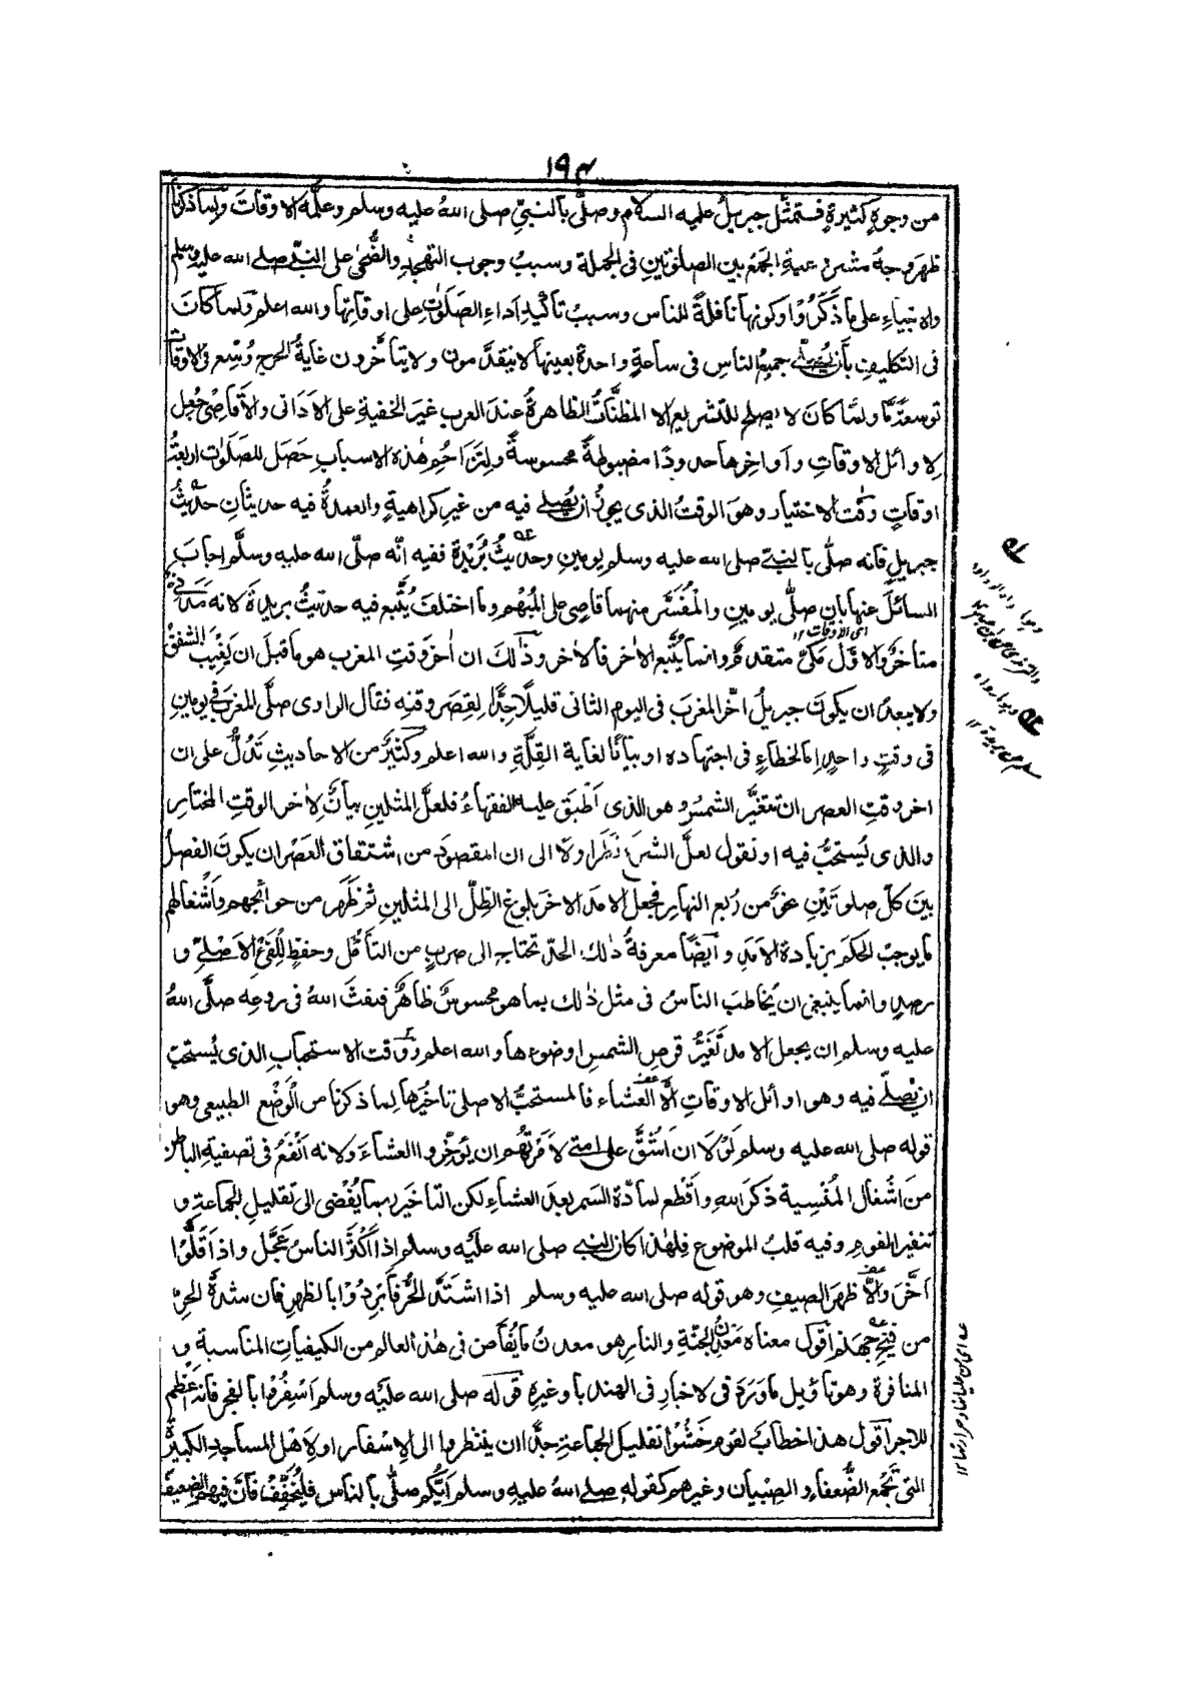 ١٩٤
من وجوهٍ كثيرةٍ فتمثَّل جبريلُ عليه السلام وصلَّى بالنبيِّ صلى اللهُ عليه وسلم وعلَّمه الاوقاتَ وبما ذكرنا
ظهر وجهُ مشروعيةِ الجمع بين الصلوتينِ فى الجملة وسببُ وجوب التهجدِ والضُّحٰى على النبيّ صلے الله عليه وسلم
والانبياءِ على ما ذكَرُوْا وكونها نافلةً للناس وسببُ تأكيدِ اَداءِ الصَلَوٰتِ على اوقاتِها والله اعلم ولما كانَ
فى التكليفِ بأن يُصلِّے جميعُ الناسِ فى ساعةٍ واحدة بعينها لايتقدَّمون ولا يتأخَّرون غايةُ الحرج وُسِّع فى الاوقات
توسعةً مَّا ولمَّا كان لا يصلح للتشريع الا المظنَّاتُ الظاهرةُ عند العرب غيرَ الخفيةِ على الاَدَانى والاَقاصِىْ جُعِل
لِاوائل الاوقاتِ واَواخِرها حدودًا مضبوطةً محسوسةً ولِتَزاحُمِ هٰذه الاسبابِ حَصَل للصَلَوٰت اربعةُ
اوقاتٍ وقتُ الاختيار وهو الوقتُ الذى يجوزُ ان يُّصلے فيه من غيرِ كراهيةٍ والعمدةُ فيه حديثانِ حديثُ
جبريلِ فانه صلّٰى بالنبىّ صلى الله عليه وسلم يومينِ وحديثُ بُرَيْدة ففيه انّه صلّى الله عليه وسلَّم اجابَ
السائلَ عنها بان صلّٰى يومينِ والمُفسَّر منهما قاضٍ على المُبْهم وما اختلفَ يُتَّبع فيه حديثُ بريدة لانه مَدَنِىٌّ
متأخرٌ والاوّلُ مَكىٌّ متقدمٌ وانما يُتَّبع الاٰخر فالاٰخر وذٰلكَ ان اٰخر وقتِ المغرب هو ما قبلَ ان يَّغيْبَ الشفقُ
اى الاوقات ١٢
ولا يبعد ان يكونَ جبريلُ اخّر المغربَ فى اليوم الثانى قليلًا جِدًّا لِقِصَرِ وقته فقال الراوى صلَّى المغربَ فى يومينِ
فى وقتٍ واحدٍ اِما لخطاءٍ فى اجتهاده او بيانًا لغاية القِلَّةِ والله اعلم وكثيرٌ من الاحاديثِ تَدُلُّ على ان
اٰخر وقتِ العصر ان تتغيَّر الشمسُ وهو الذى اَطْبَق عليه الفقهاءُ فلعلَّ المثلينِ بيانٌ لاٰخر الوقتِ المختارِ
والذى يُستحبُّ فيه او نقول لعلَّ الشرعَ نَظَر اولًا الى ان المقصودَ من اشتقاق العَصْر ان يكونَ الفصلُ
بينَ كلِّ صلوتَيْنِ نحوٌ من رُبع النهارِ فجُعِل الامد الاٰخر بلوغَ الظِّلِّ الى المثلينِ ثم ظَهَر من حوائجهم واَشغالهم
ما يوجبُ الحكمَ بزيادة الامَدِ وايضًا معرفةُ ذٰلك الحدِّ تحتاج الى ضربٍ من التأمُّل وحفظٍ لِلفَىْءِ الاَصْلِىِّ و
رصدٍ وانما ينبغى ان يُخاطب الناسُ فى مثل ذٰلك بما هو محسوسٌ ظاهرٌ فنفثَ اللهُ فى روعِه صلَّى اللهُ
عليه وسلم ان يجعل الامد تَغيُّرُ قرصِ الشمسِ او ضوءها والله اعلم ووقت الاستحبابِ الذى يُستحبّ
ان يُّصلّے فيه وهو اوائل الاوقاتِ الَّا العشاء فالمستحبُّ الاصلى تاخيرُها لِما ذكرنا من الْوَضْع الطبيعى وهو
قوله صلى الله عليه وسلم لَوْلَا ان اَشُقَّ على امتى لاَمَرْتُهم ان يؤخِّروا العشاءَ ولانه اَنْفَعُ فى تصفيةِ الباطن
منَ اشْغال المُنْسِية ذكرَ اللهِ واَقْطع لمادّة السمر بعدَ العشاءِ لكن التاخير ربما يُفْضى الى تقليلِ الجماعةِ و
تنفير القوم وفيه قلبُ الموضوع فلِهٰذا كان النبي صلى الله عليه وسلم اذا كثرَ الناسُ عَجَّل واذا قَلُّوْا
اَخَّر والَّا ظهرَ الصيفِ وهو قوله صلى الله عليه وسلم اذا اشتدَّ الحرُّ فاَبْرِدُوْا بالظهرِ فان شدةَ الحرِّ
من فَيْحِ جهنم اَقول معناه مَعْدِنُ الجنّةِ والنارِ هو معدنُ ما يُفاض فى هٰذا العالم من الكيفياتِ المناسبة و
المنافرة وهو تاويل ما وَرَدَ فى الاخبارِ فى الهندبا وغيرِهٖ قوله صلى الله عليه وسلم اَسْفِرُوْا بالفجر فانه اَعْظم
للاجر اَقول هذا خطابٌ لقومٍ خَشُوْا تقليلَ الجماعةِ جدًّا ان ينتظروا الى الاِسْفار اولاَهْل المساجدِ الكبيرةِ
التى تجمع الضُّعفاءَ والصِّبيان وغيرهم كقوله صلے اللهُ عليه وسلم اَيُّكم صلّٰى بالناس فليُخَفِّفْ فانَّ فيهم الضعيفَ